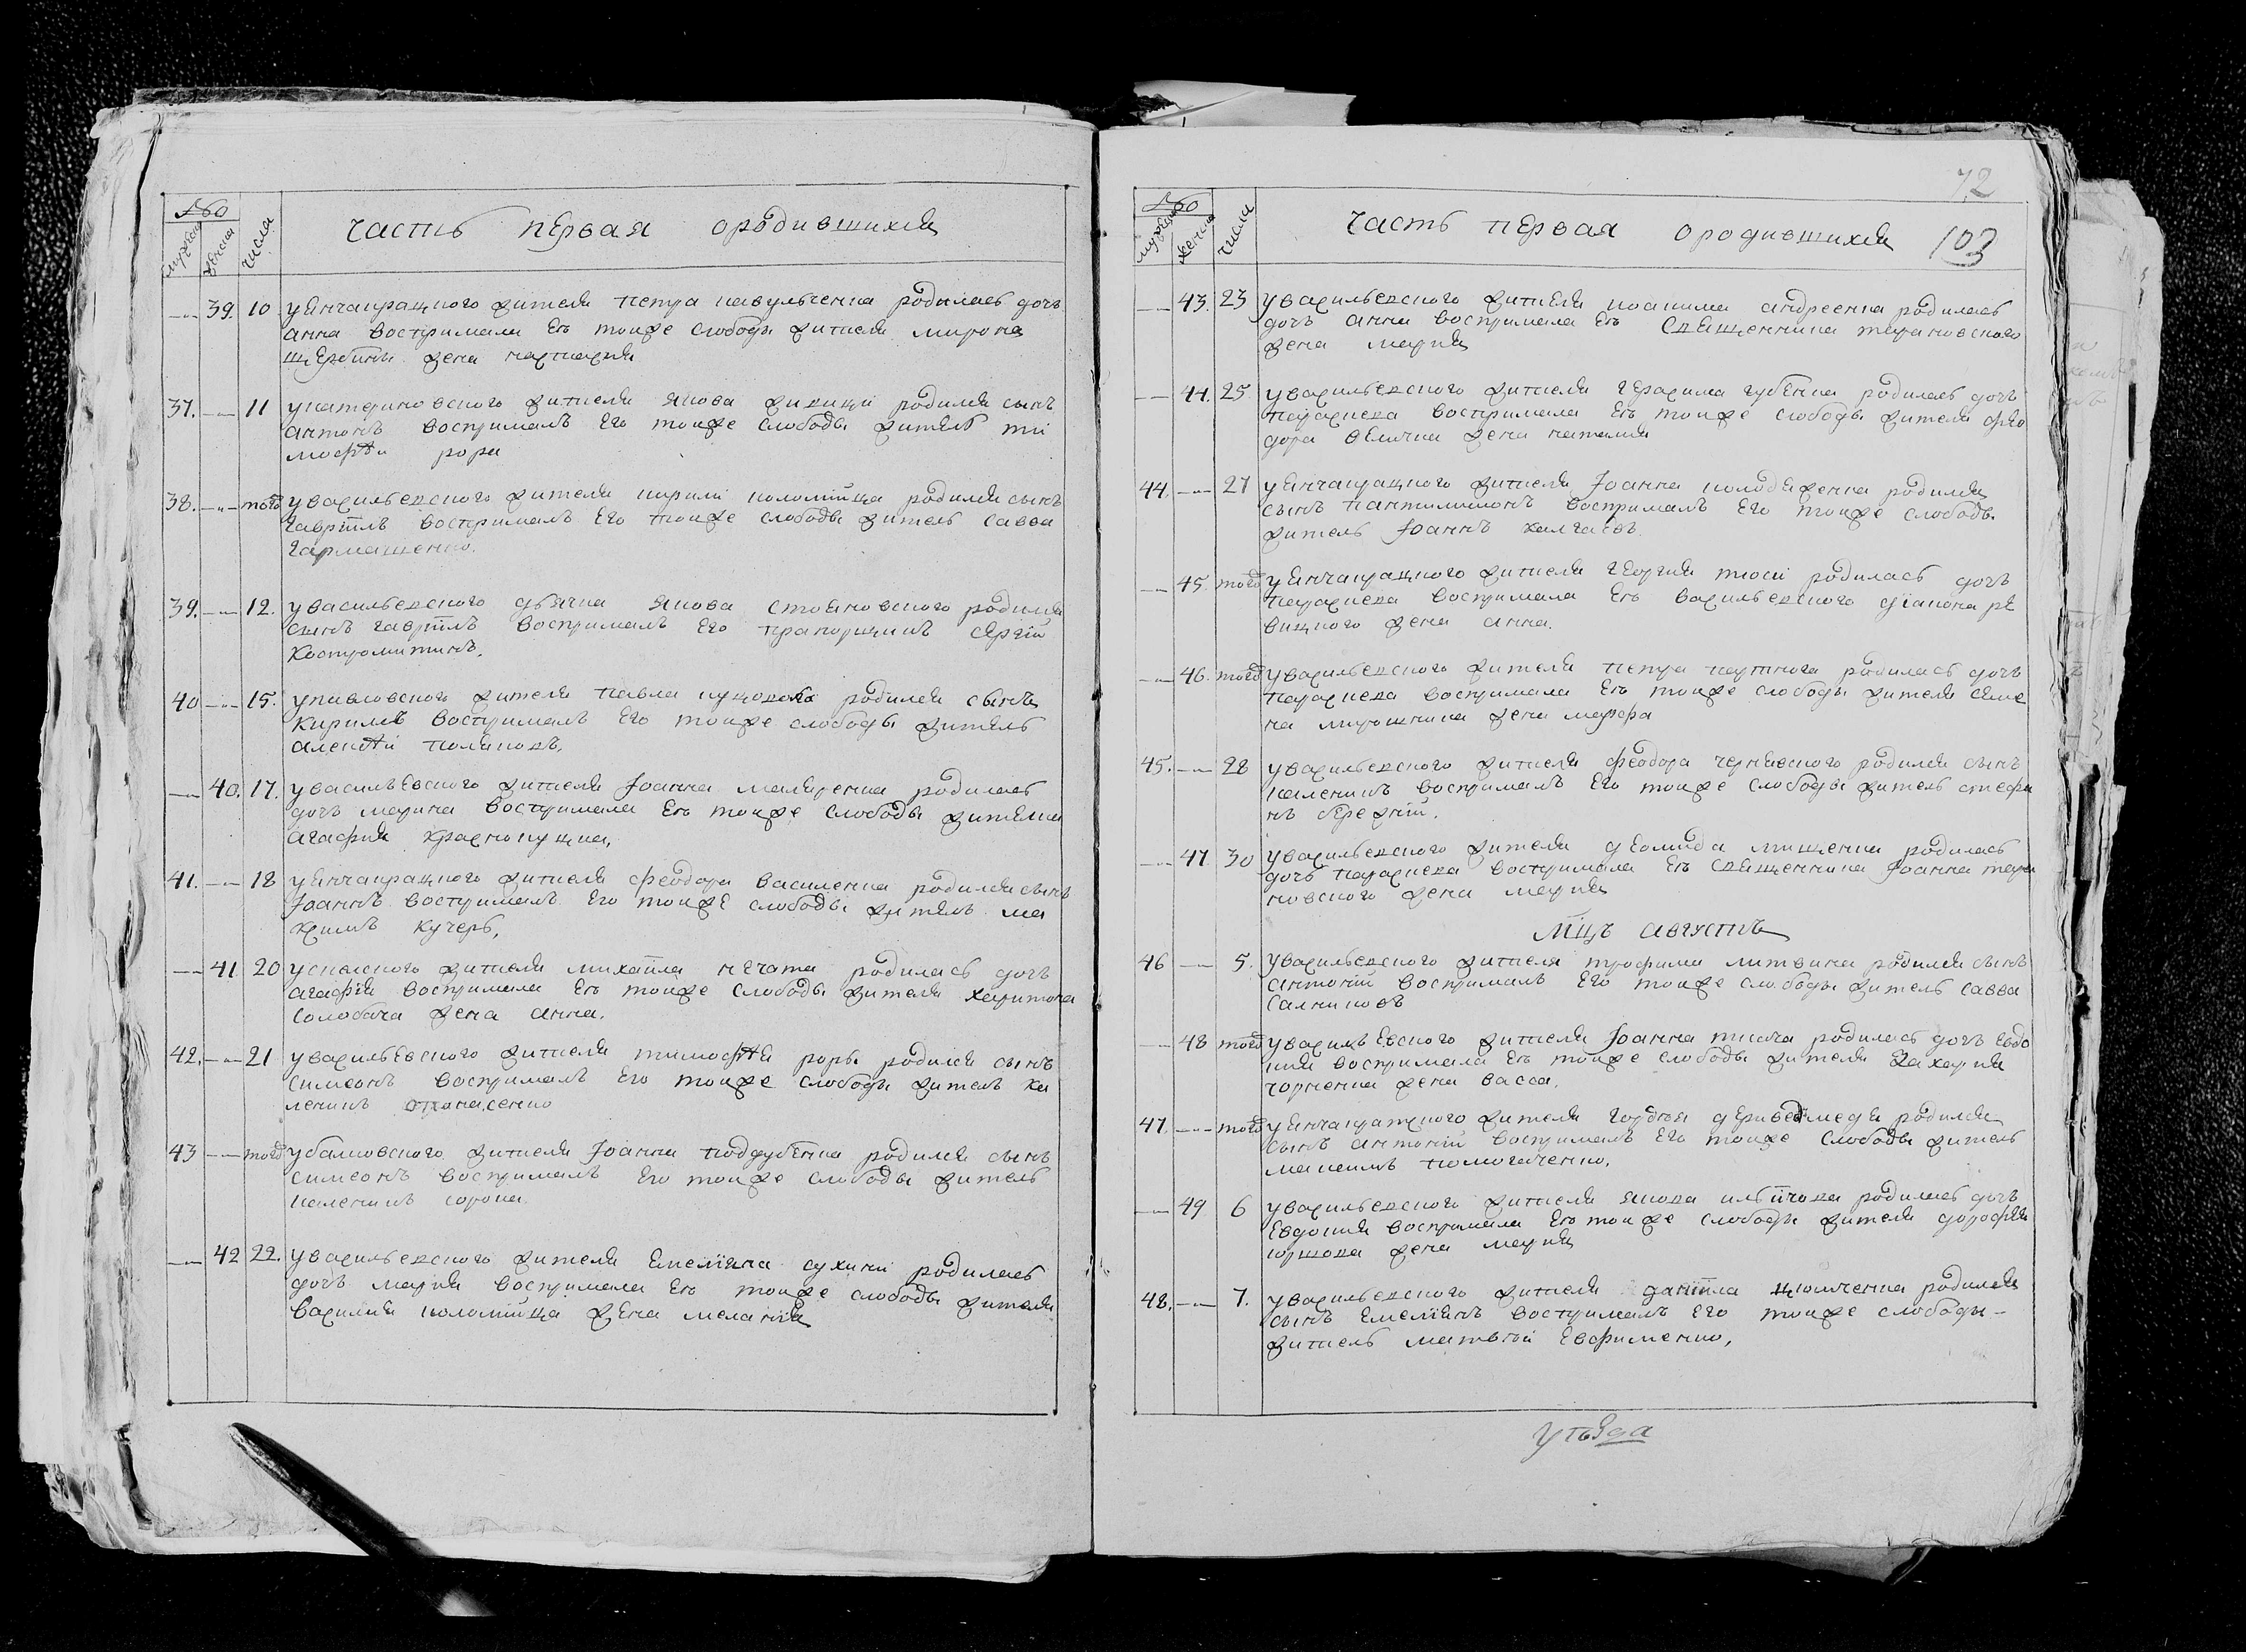 №
мужеска
женска
числа
часть первая ородившихся
39. 10 уянчакрацкого жителя петра павульченка родилась дочь
анна восприимала Ея тойже слободы жителя мирона
щербины жена настасия
37. 11 укатериновского жителя якова родился сынъ
антонъ восприималъ Его тойже слободы житель ти
мофѣй рора
38. того увасильевского жителя кирила коломійца родился сынъ
гавріилъ восприималъ Его тойже слободы житель савва
гармашенко.
39. 12. увасильевского дьячка якова стояновского родился
сынъ гавріилъ восприималъ Его прапорщикъ сергій
костромитинъ.
40 15. упавловского жителя павла родился сынъ
кирилъ восприималъ Его тойже слободы житель
алексѣй поляковъ.
40. 17. увасильевского жителя Іоанна маляренка родилась
дочь марина восприимала Ея тойже слободы жителка
агафия краснокуцка.
41. 18 уянчакрацкого жителя феодора василенка родился сынъ
Іоаннъ восприималъ Его тойже слободы житель ма
ксимъ кучеръ.
41 20 успаского жителя михаила нечата родилась дочь
агафія восприимала Ея тойже слободы жителя харитона
солобача жена анна.
42. 21 увасильевского жителя тимофѣя роры родился сынъ
симеонъ восприималъ Его тойже слободы житель ка
леникъ опанасенко
43 того убалковского жителя Іоанна поддубенка родился сынъ
симеонъ восприималъ Его тойже слободы житель
каленикъ сорока.
42 22. увасильевского жителя Емеліяна сухини родилась
дочь мария восприимала Ея тойже слободы жителя
василия коломійца жена меланія
72
№
мужеска
женска
числа
часть первая ородившихся 103
43. 23 увасильевского жителя иоакима андреенка родилась
дочь анна восприимала Ея священника тарановского
жена мария
44. 25 увасильевского жителя герасима губенка родилась дочь
параскева восприимала Ея тойже слободы жителя фео
дора величка жена наталия
44. 27 уянчакрацкого жителя Іоанна колодяженка родился
сынъ пантилимонъ восприималъ Его тойже слободы
житель Іоаннъ калгаевъ.
45. того уянчакрацкого жителя георгия тюси родилась дочь
параскева восприимала Ея васильевского діакона ре
вицкого жена анна.
46. того увасильевского жителя петра родилась дочь
параскева восприимала Ея тойже слободы жителя семе
на мирошника жена марфа
45. 28 увасильевского жителя феодора чернявского родился сынъ
каленикъ восприималъ Его тойже слободы житель стефа
нъ бережній.
47 30 увасильевского жителя деомида мищенка родилась
дочь параскева восприимала Ея священника Іоанна тара
новского жена мария
Мцъ августъ
46 5. увасильевского жителя трофима литвина родился сынъ
антоній восприималъ Его тойже слободы житель савва
салниковъ
48 того увасильевского жителя Іоанна ткача родилась дочь евдо
кия восприимала Ея тойже слободы жителя Захария
чорненка жена васса.
47. того уянчакрацкого жителя гордѣя деряведмедя родился
сынъ антоній восприималъ Его тойже слободы житель
максимъ помогаченко.
49 6 увасильевского жителя якова родилась дочь
Евдокия восприимала Ея тойже слободы жителя дорофѣя
коршова жена мария
48. 7. увасильевского жителя даніила родился
сынъ Емеліянъ восприималъ Его тойже слободы
житель матвѣй Евфименко.
уѣзда